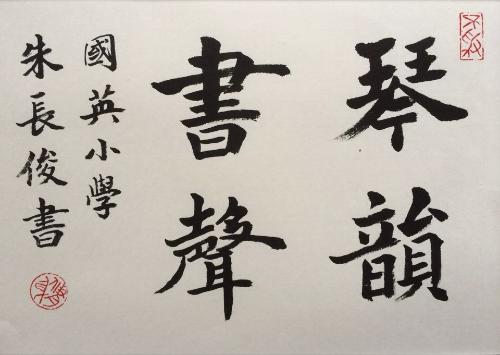 琴韻
書聲
國英小學
朱長俊書